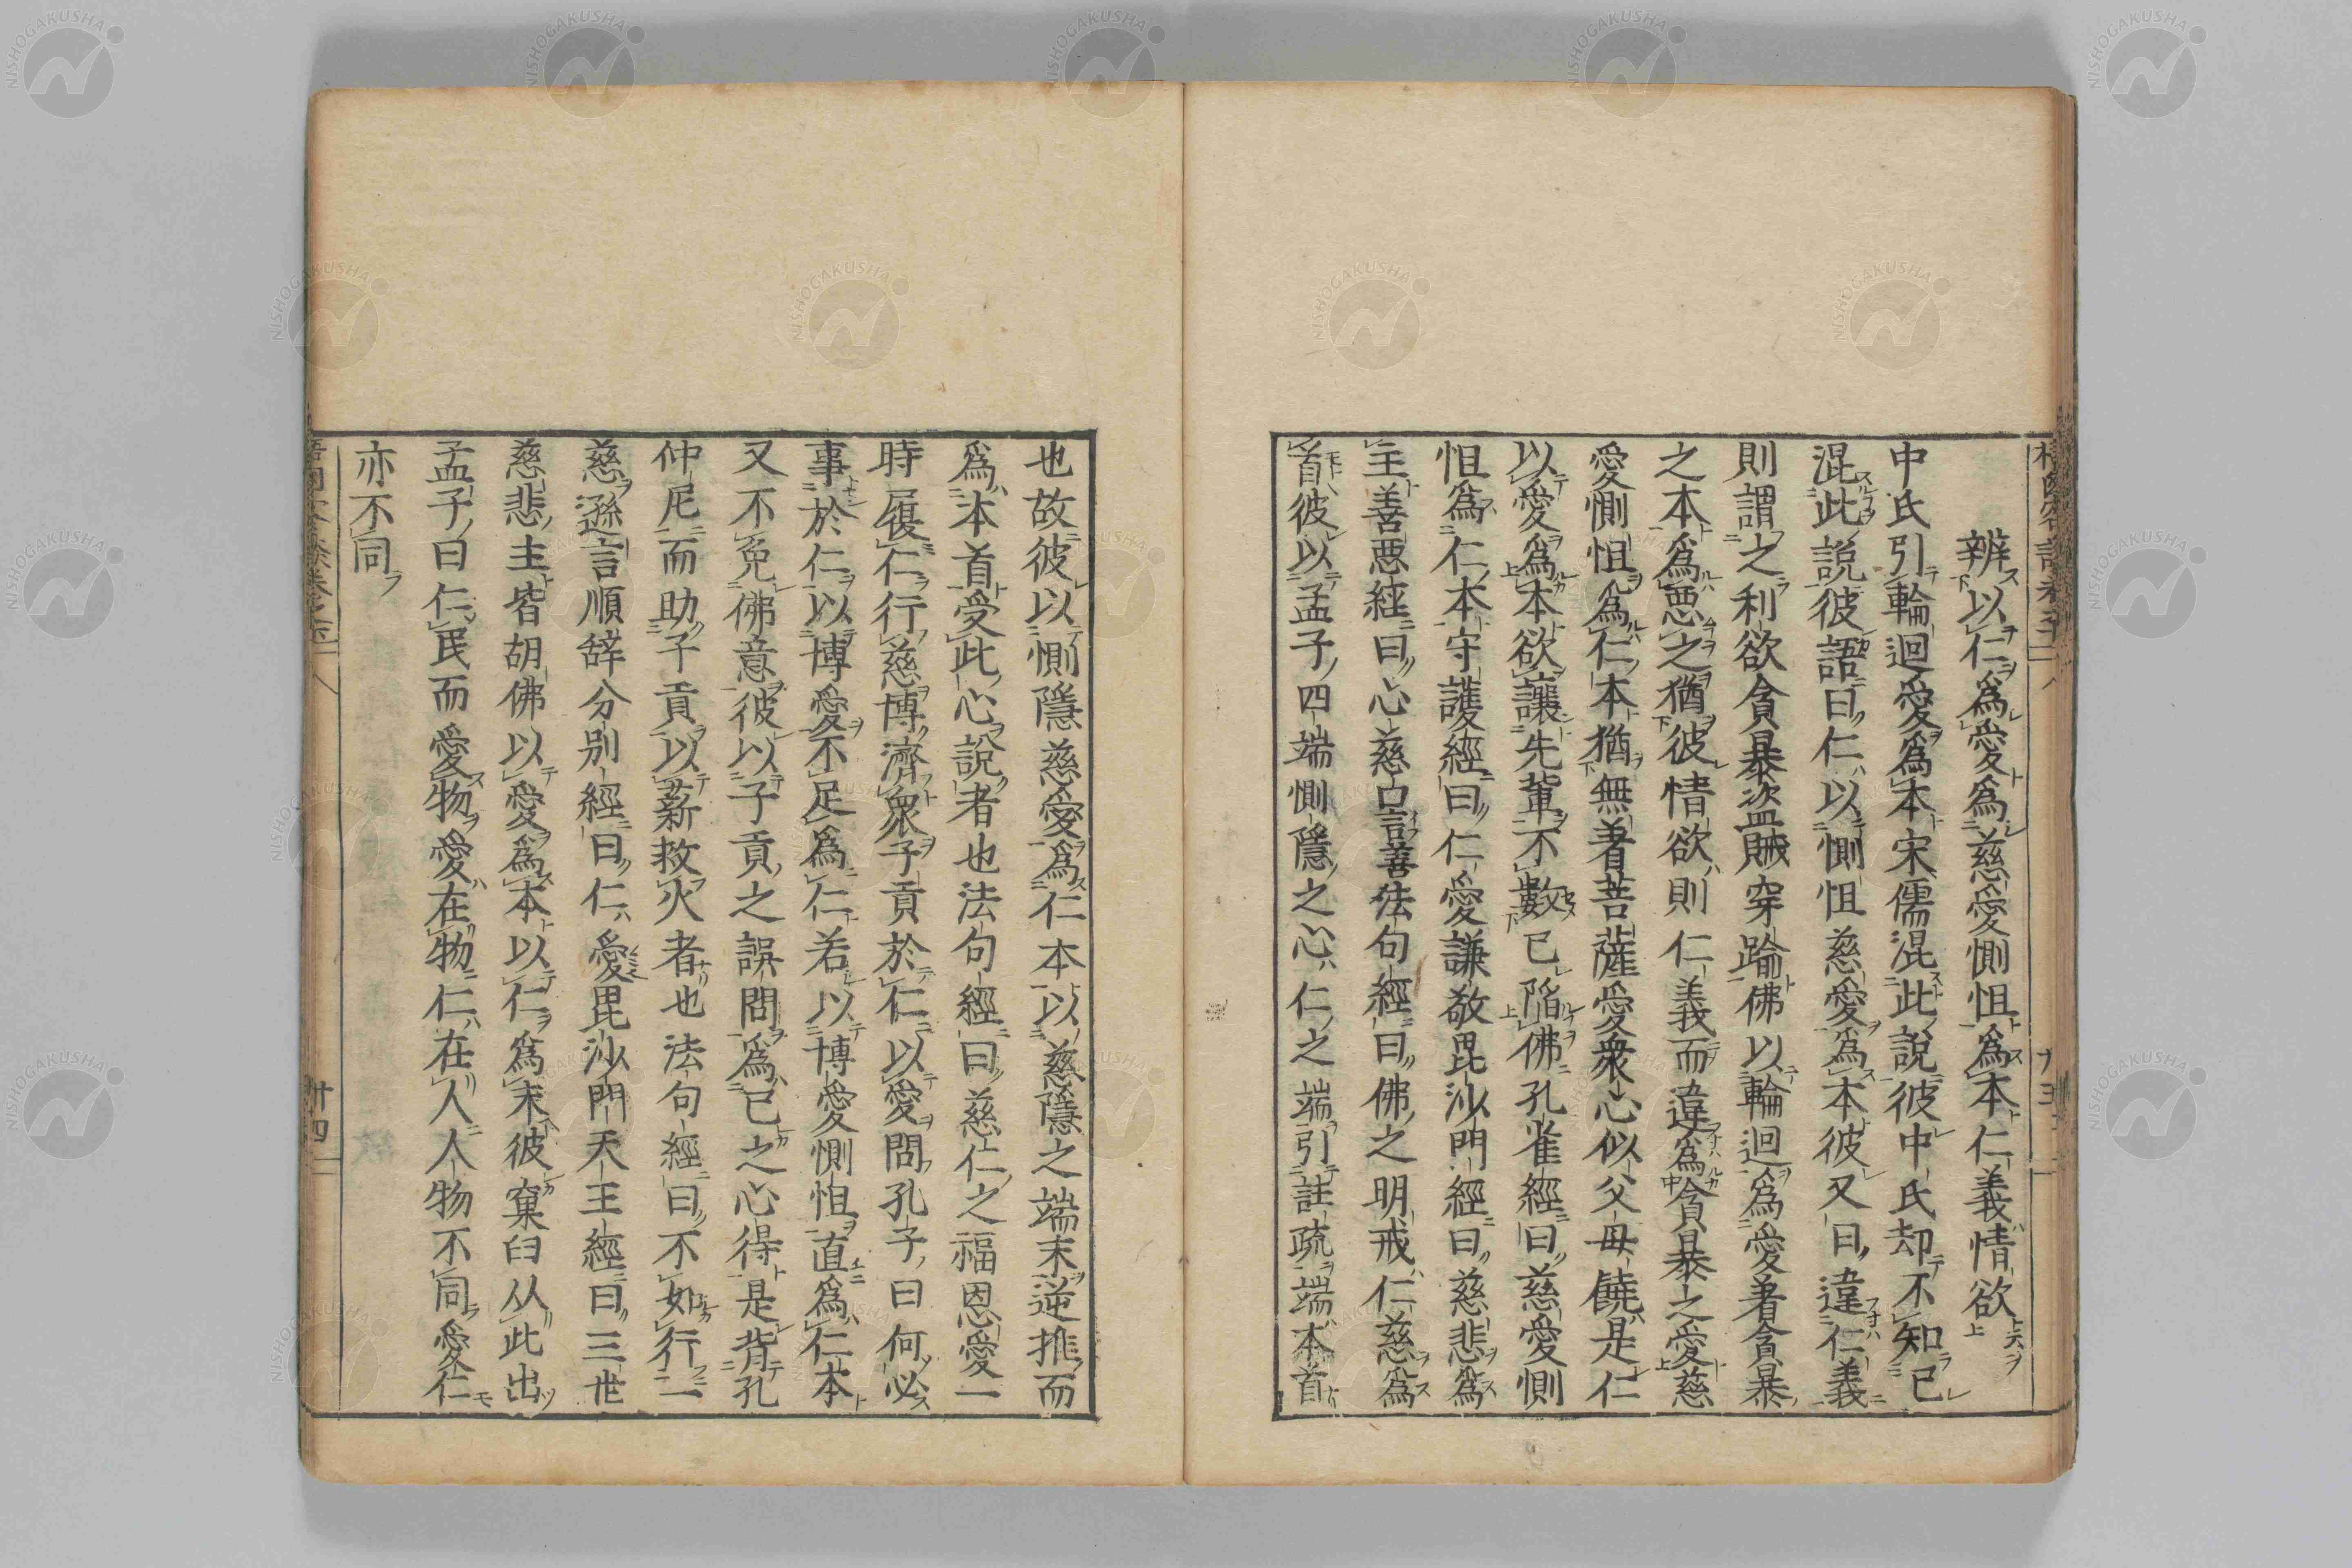 辨以仁爲愛爲慈愛惻怛爲本仁義情欲
中氏引輪迴愛爲本宋儒混此說彼中氏却不知已
混此說彼語曰仁以惻怛慈愛爲本彼又曰違仁義
則謂之利欲貪暴盜賊穿踰佛以輪迴爲愛著貪暴
之本爲惡之猶彼情欲則仁義而違爲貪暴之愛慈
愛惻怛爲仁本猶無著菩薩愛衆心似父母饒是仁
以愛爲本欲讓先輩不數已陷佛孔雀經曰慈愛惻
怛爲仁本守護經曰仁愛謙敬毘沙門經曰慈悲爲
主善惡經曰心慈口言善法句經曰佛之明戒仁慈爲
首彼以孟子四端惻隱之心仁之端引註疏端本首
也故彼以惻隱慈愛爲仁本以慈隱之端末逆推而
爲本首受此心說者也法句經曰慈仁之福恩愛一
時履仁行慈博濟衆子貢於仁以愛問孔子曰何必
事於仁以博愛不足爲仁若以博愛惻怛直爲仁本
又不免佛意彼以子貢之誤問爲已之心得是背孔
仲尼而助子貢以薪救火者也法句經曰不如行一
慈遜言順辞分別經曰仁愛毘沙門天王經曰三世
慈悲主皆胡佛以愛爲本以仁爲末彼窠臼从此出
孟子曰仁民而愛物愛在物仁在人人物不同愛仁
亦不同
卅四